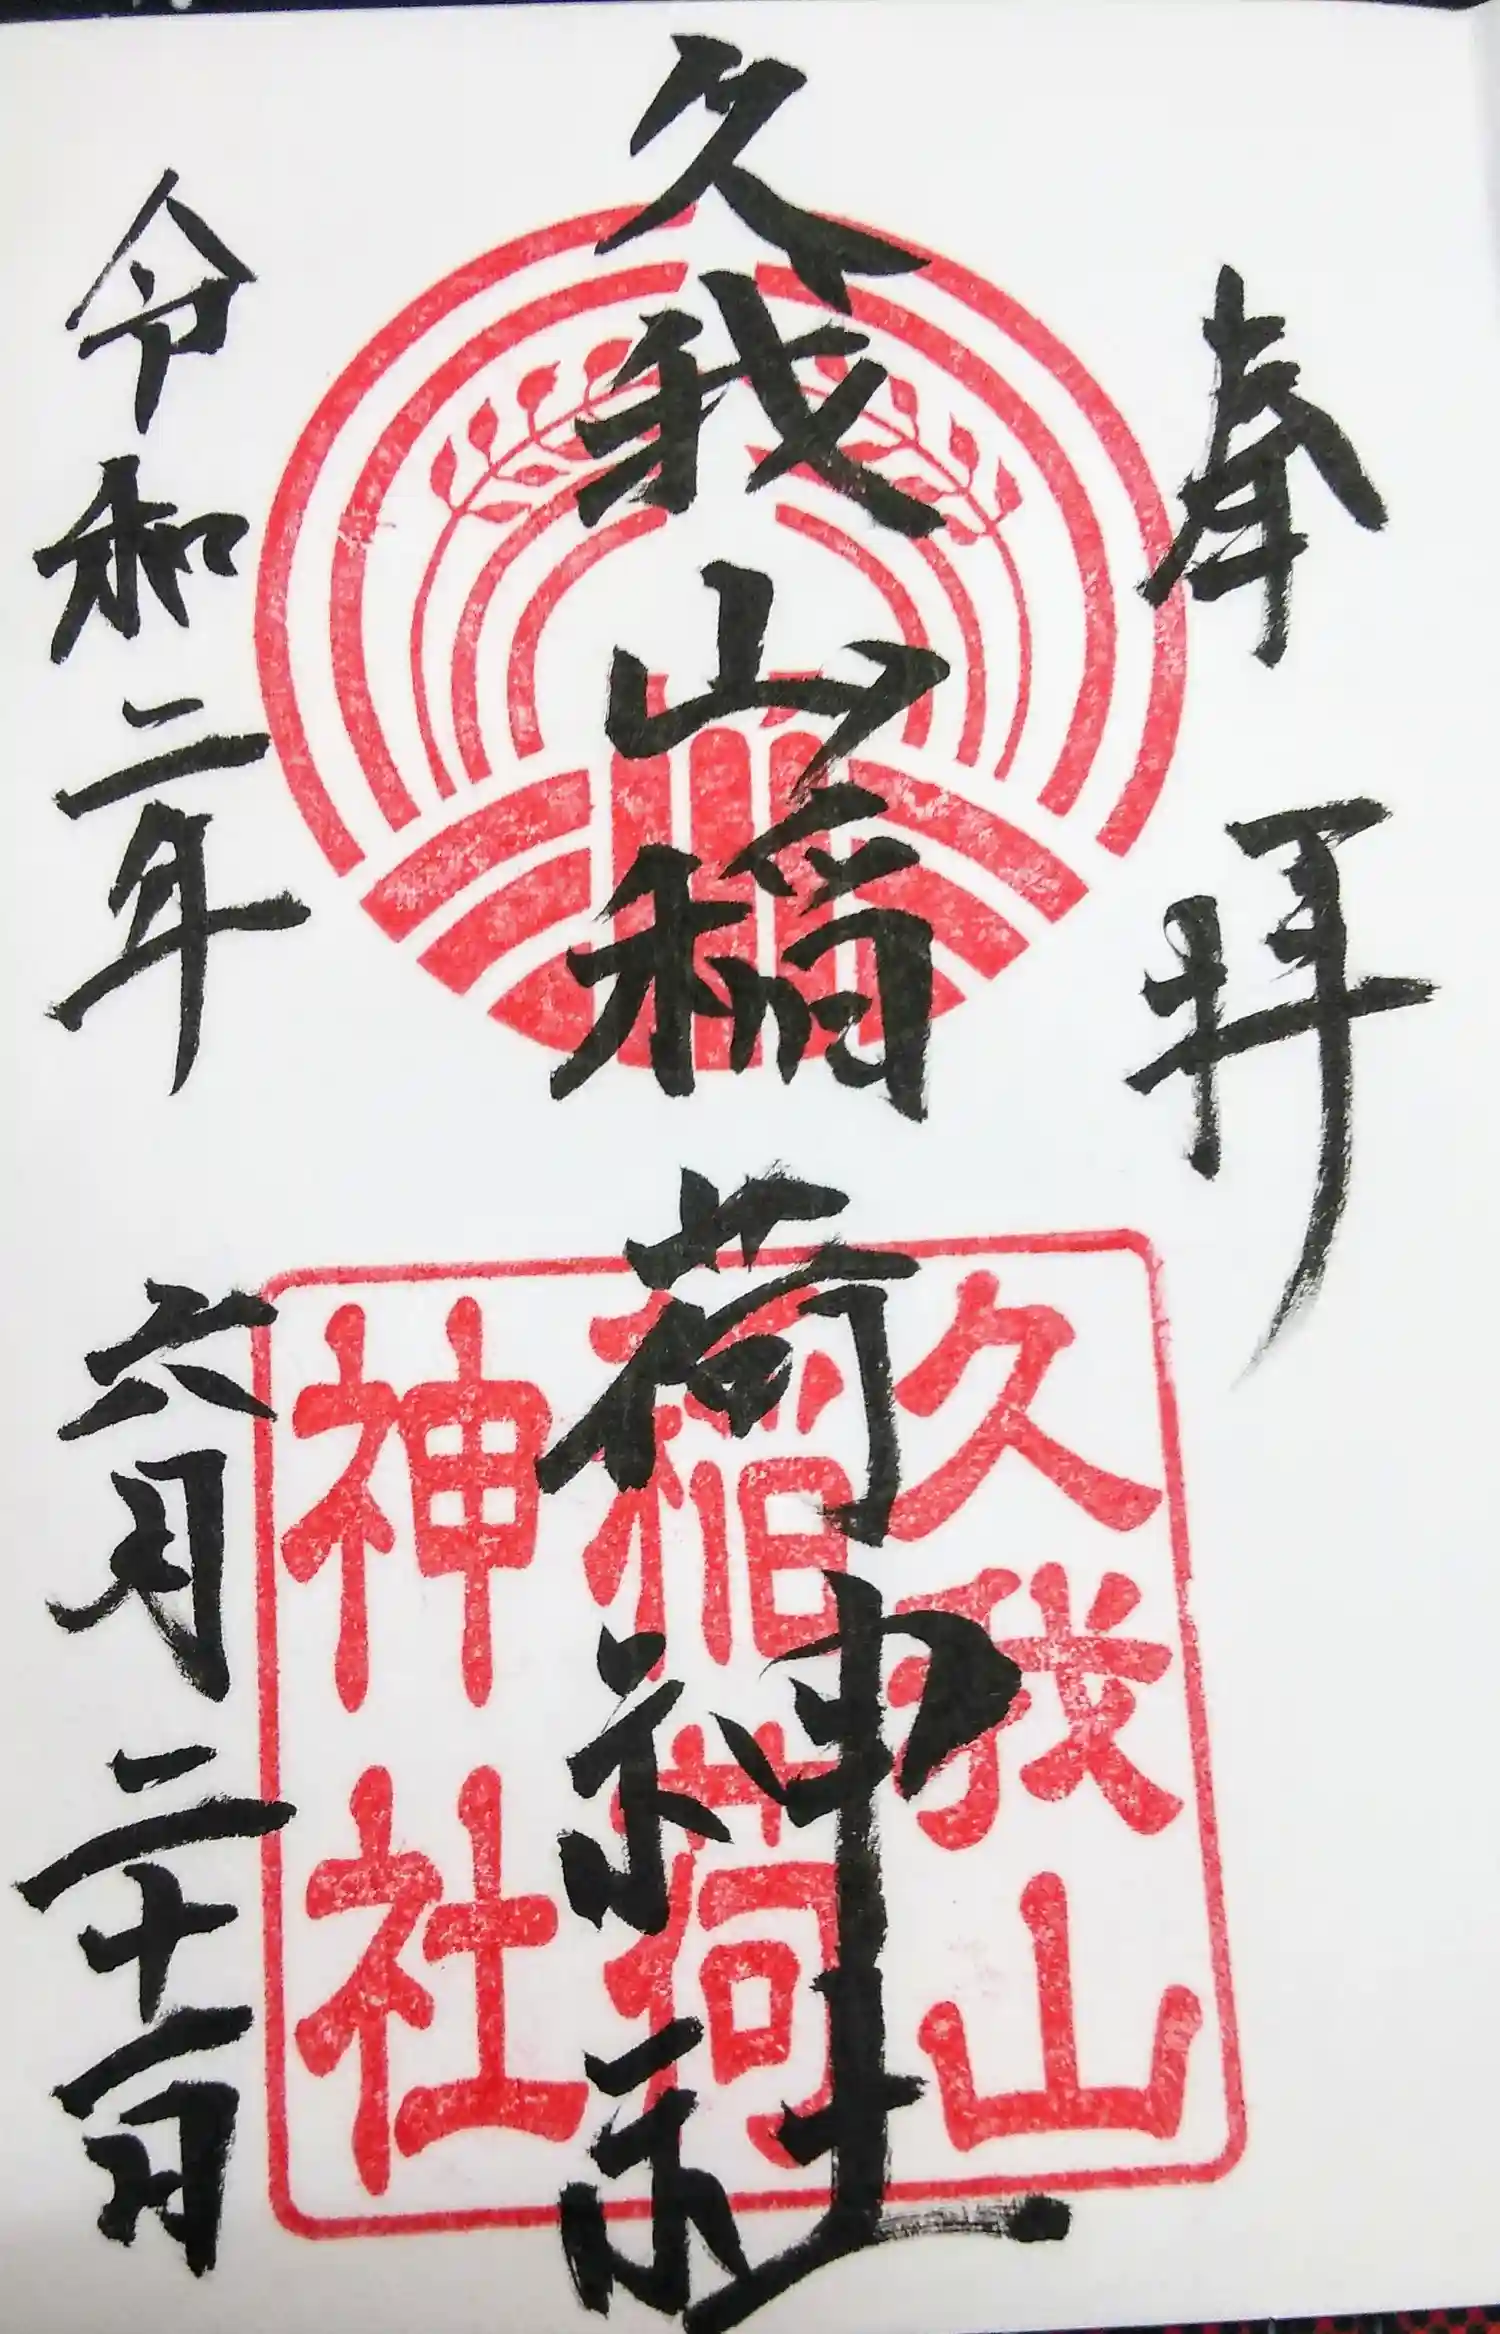 奉拝
久我山稲荷神社
令和二年 六月二十一日
久我山
稲荷
神社